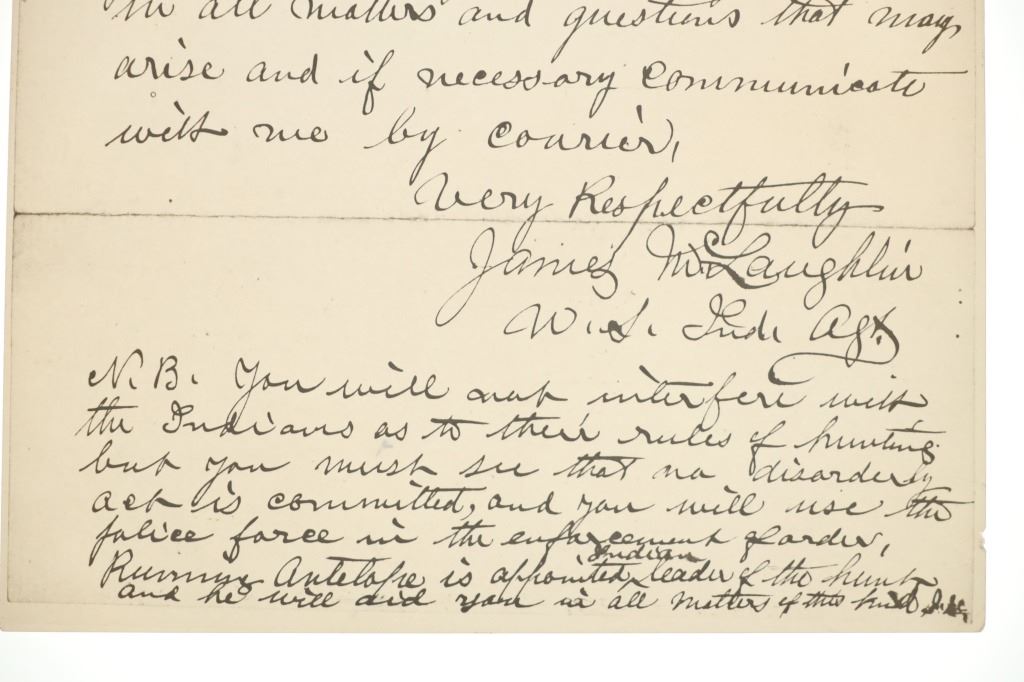 in all matters and questions that may
arise and if necessary communicate
with me by courier,
Very Respectfully
James McLaughlin
U.S. Ind. Agt.
N.B. You will not interfere with
the Indians as to their rules of hunting
but you must see that no disorderly
act is committed, and you will use the
police force in the enforcement of order,
Indian
Running Antelope is appointed leader of the hunt
and he will aid you in all matters of this kind